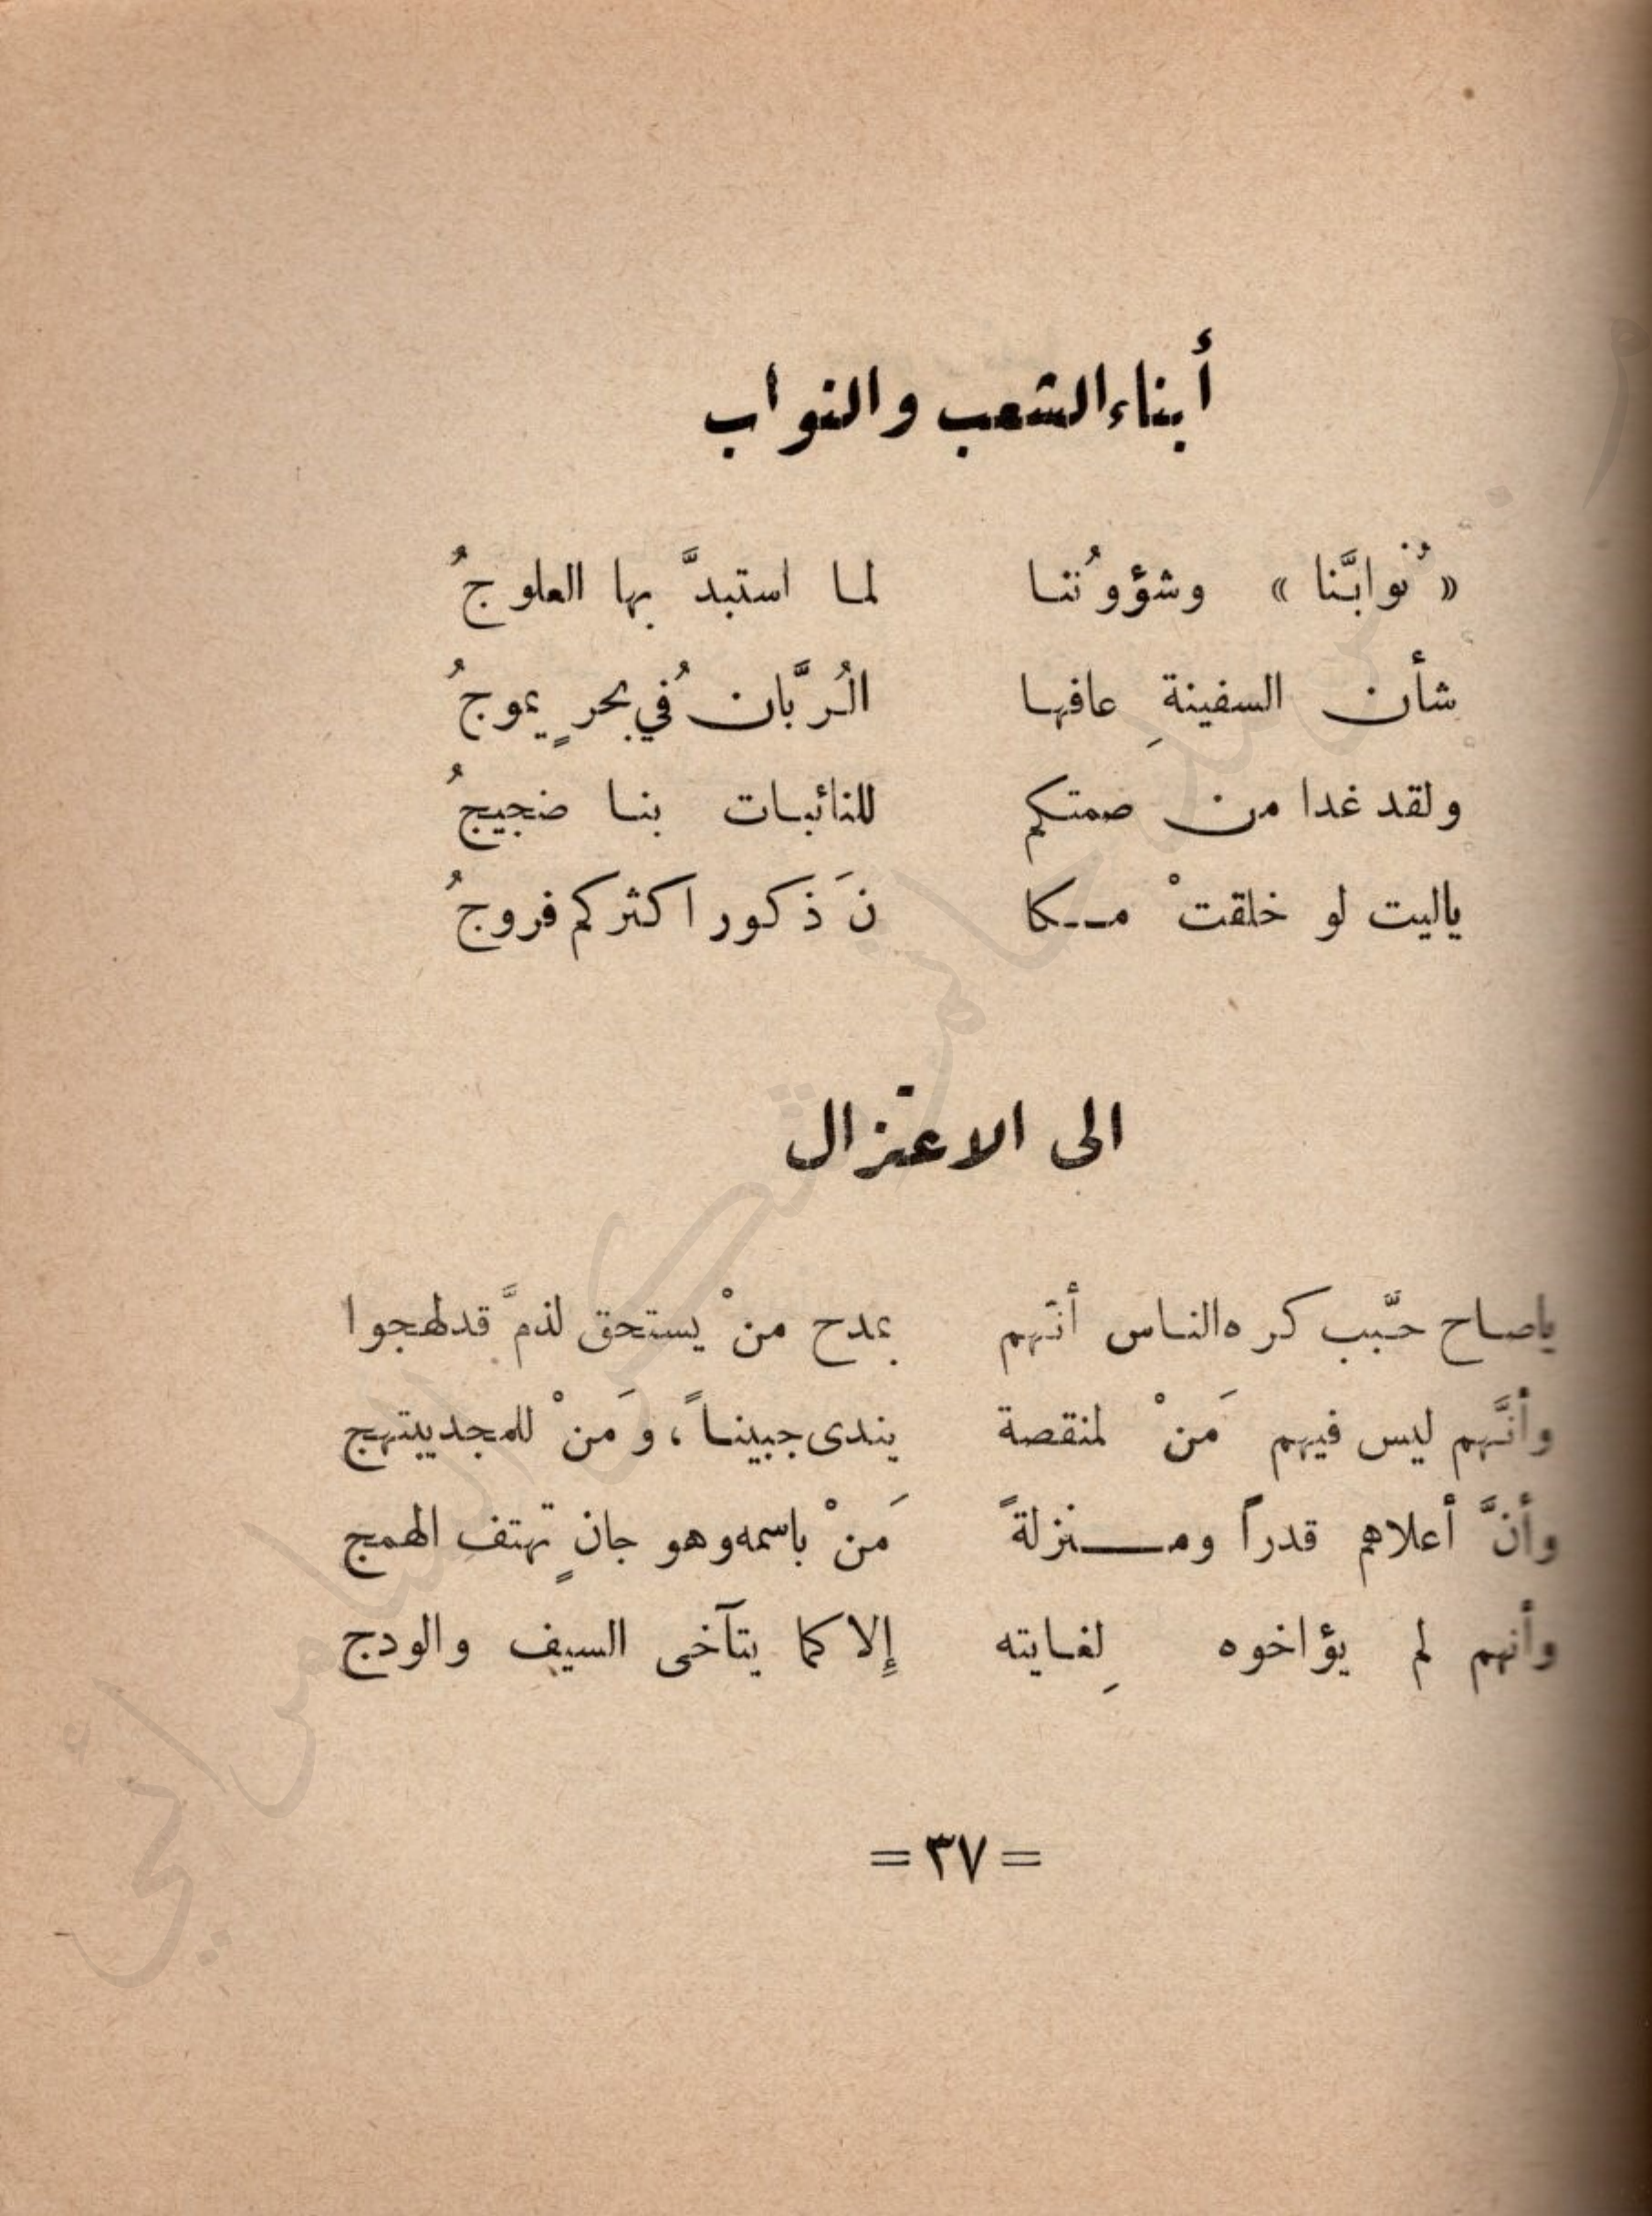 أبناء الشعب والنواب
« نُوابَّنا » وشؤوُننا لما استبدَّ بها العلوجُ
شأن السفينةِ عافها الُربَّانُ في بحرٍ يموجُ
ولقد غدا من صمتكم للنائبات بنا ضجيجُ
ياليت لو خلقتْ مكا نَ ذكور اكثركم فروجُ
الى الاعتزال
ياصاح حبَّب كره الناس أنَّهم بمدح منْ يستحق لذمَّ قد لهجوا
وأنَّهم ليس فيهم مَنْ لمنقصة يندى جبيناً، ومَنْ للمجد يبتهج
وأنَّ أعلاهم قدراً ومنزلةً مَنْ باسمه وهو جانٍ تهتف الهمج
وأنهم لم يؤاخوه لِغايته إلا كما يتآخى السيف والودج
= ٣٧ =